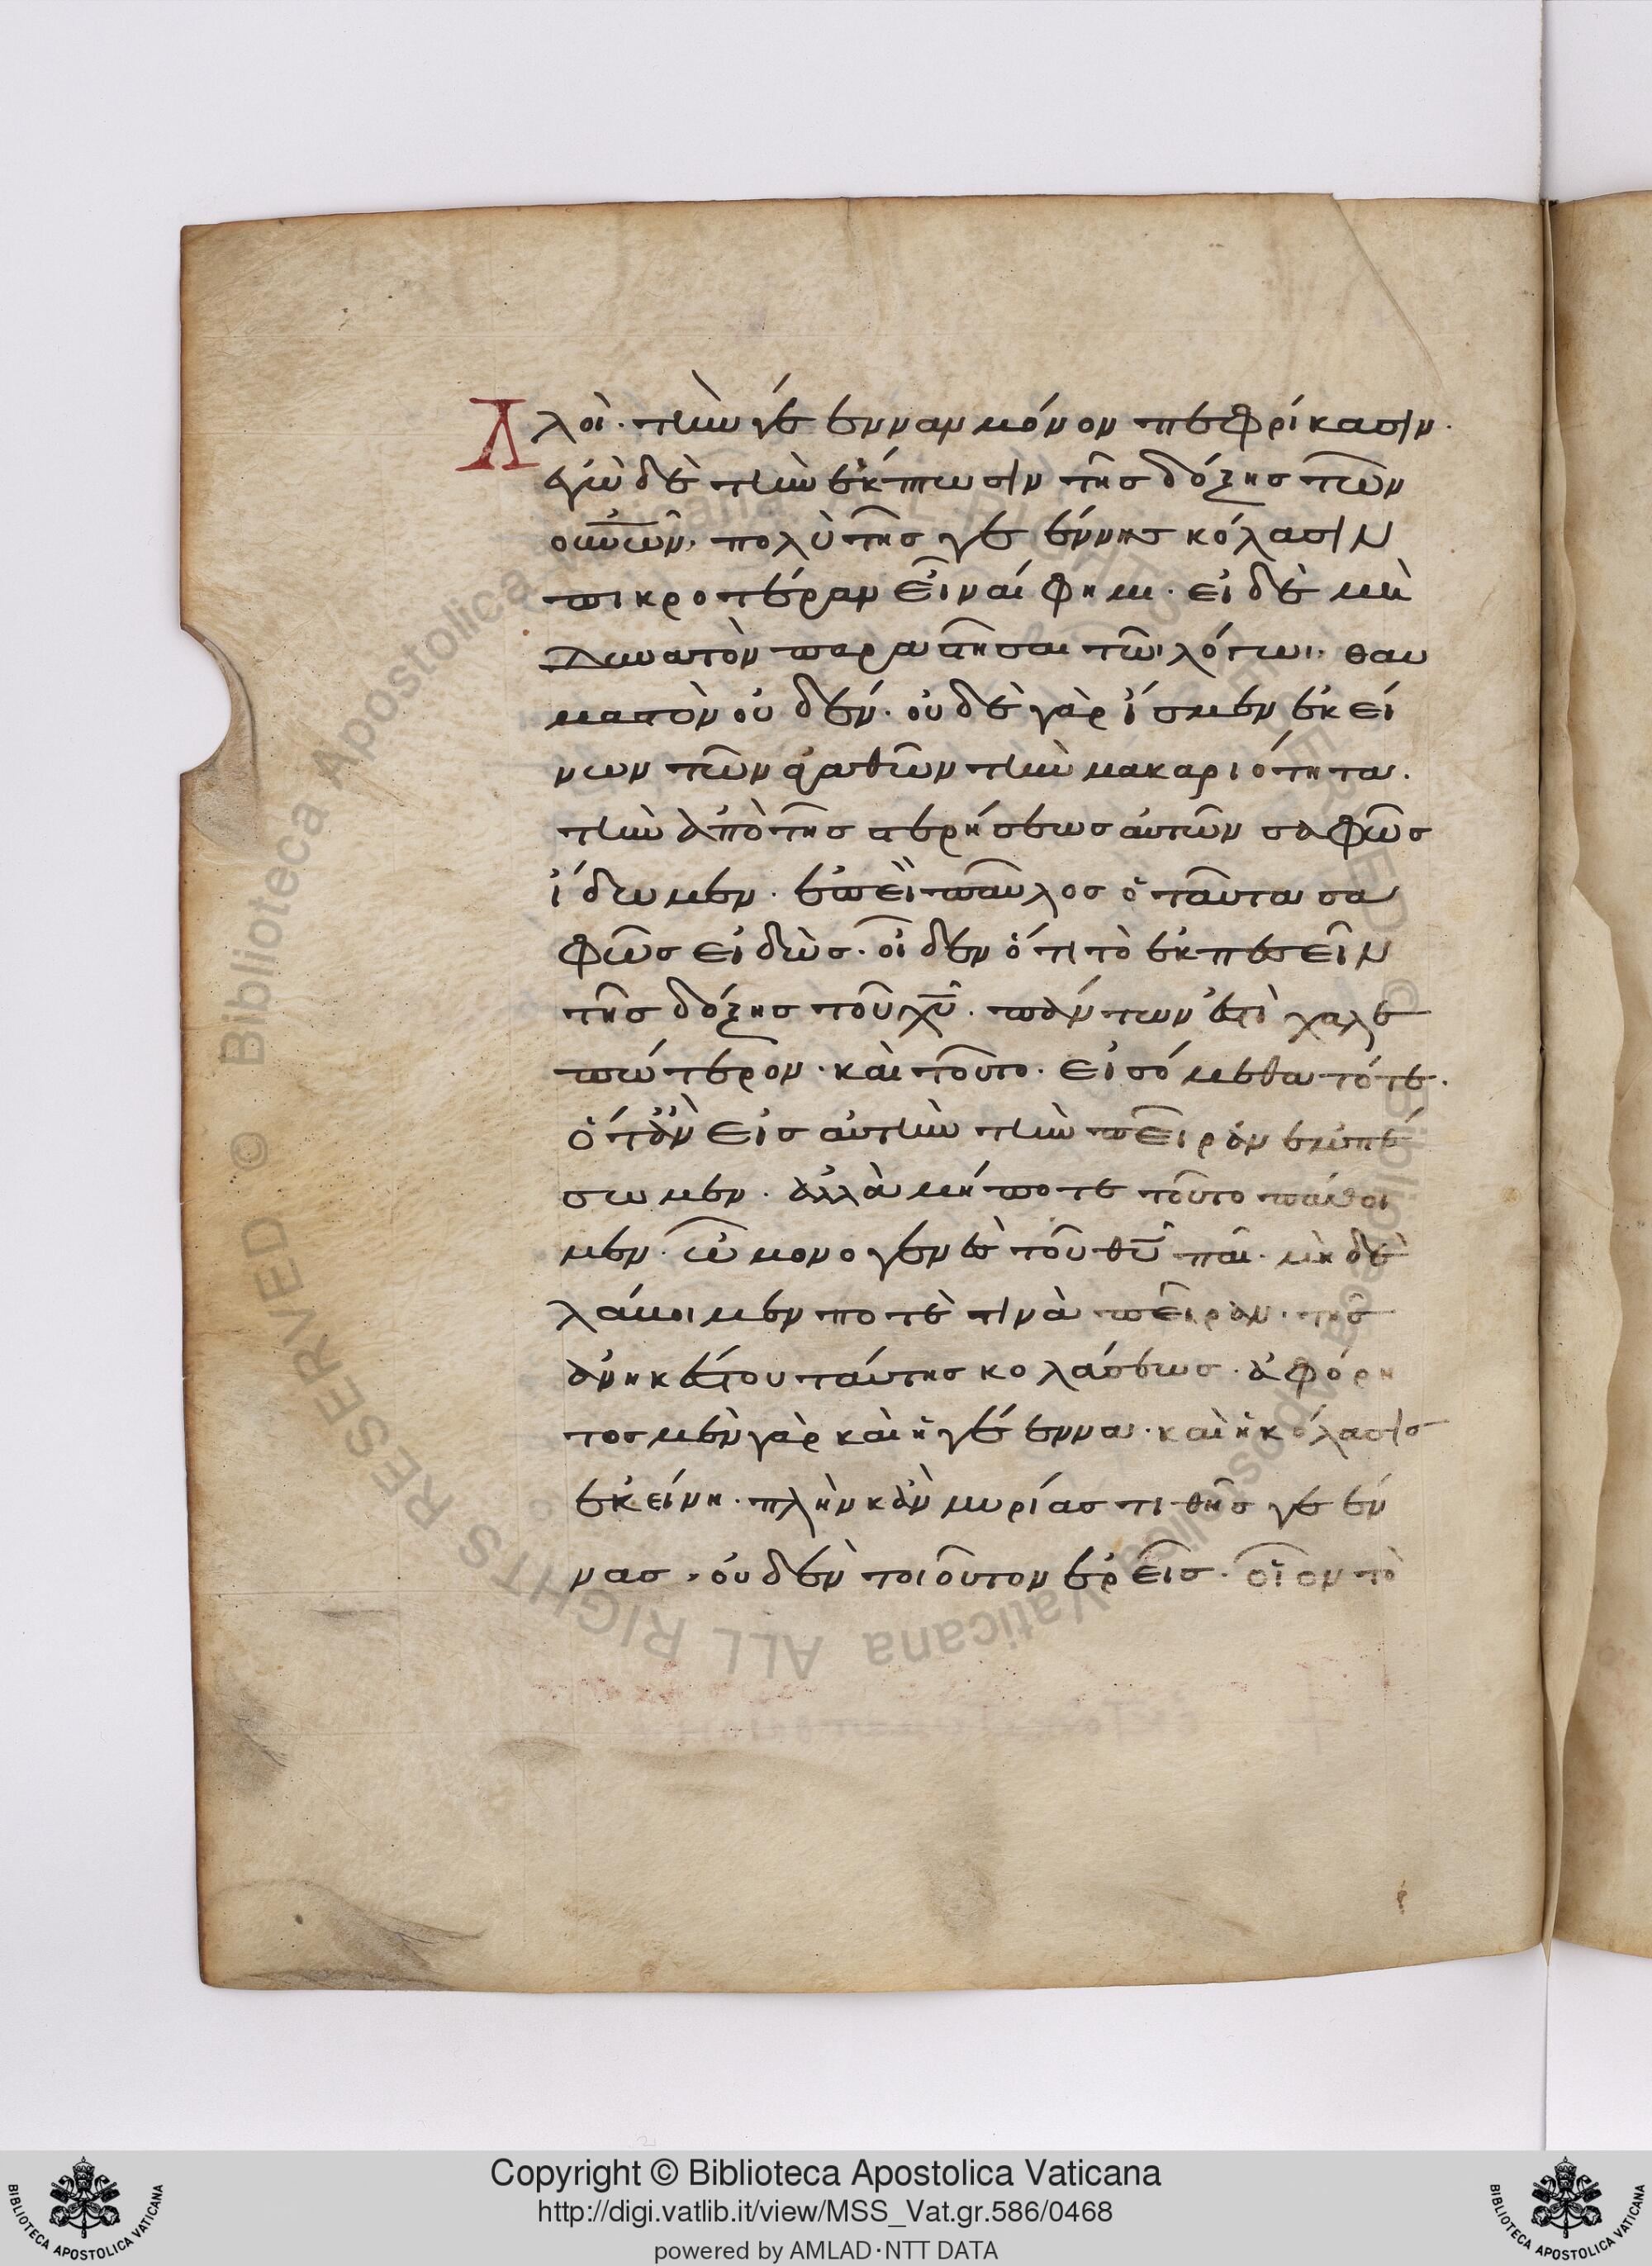 λοὶ· τὴν γέενναν μόνον πεφρίκασιν·
ἐγὼ δὲ τὴν ἔκπτωσιν τῆς δόξης τῶν
οὐνῶν, πολὺ τῆς γεέννης κόλασιν
πικροτέραν εἶναί φημι· εἰ δὲ μὴ
δυνατὸν παραστῆσαι τῶι λόγωι, θαυ
μαστὸν οὐδέν· οὐδὲ γὰρ ἴσμεν ἐκεί
νων τῶν ἀγαθῶν τὴν μακαριότητα·
τὴν ἀπὸ τῆς στερήσεως αὐτῶν σαφῶς
ἴδωμεν· ἐπεὶ παῦλος ὁ ταῦτα σα
φῶς εἰδὼς· οἶδεν ὅτι τὸ ἐκπεσεῖν
τῆς δόξης τοῦ χυ· πάντων ἐστὶ χαλε
πώτερον· καὶ τοῦτο· εἰσόμεθα τότε·
ὅταν εἰς αὐτὴν τὴν πεῖραν ἐμπέ
σωμεν· ἀλλὰ μήποτε τοῦτο πάθοι
μεν· ὦ μονογενὲ τοῦ θυ παῖ· μὴ δὲ
λάβοιμεν ποτὲ τινὰ πεῖραν· τῆς
ἀνηκέστου ταύτης κολάσεως· ἀφόρη
τος μὲν γὰρ καὶ ἡ γέεννα· καὶ ἡ κόλασις
ἐκείνη· πλὴν κἂν μυρίας τιθῆς γεέν
νας, οὐδὲν τοιοῦτον ἐρεῖς· οἷον τὸ
Copyright © Biblioteca Apostolica Vaticana
http://digi.vatlib.it/view/MSS_Vat.gr.586/0468
powered by AMLAD·NTT DATA